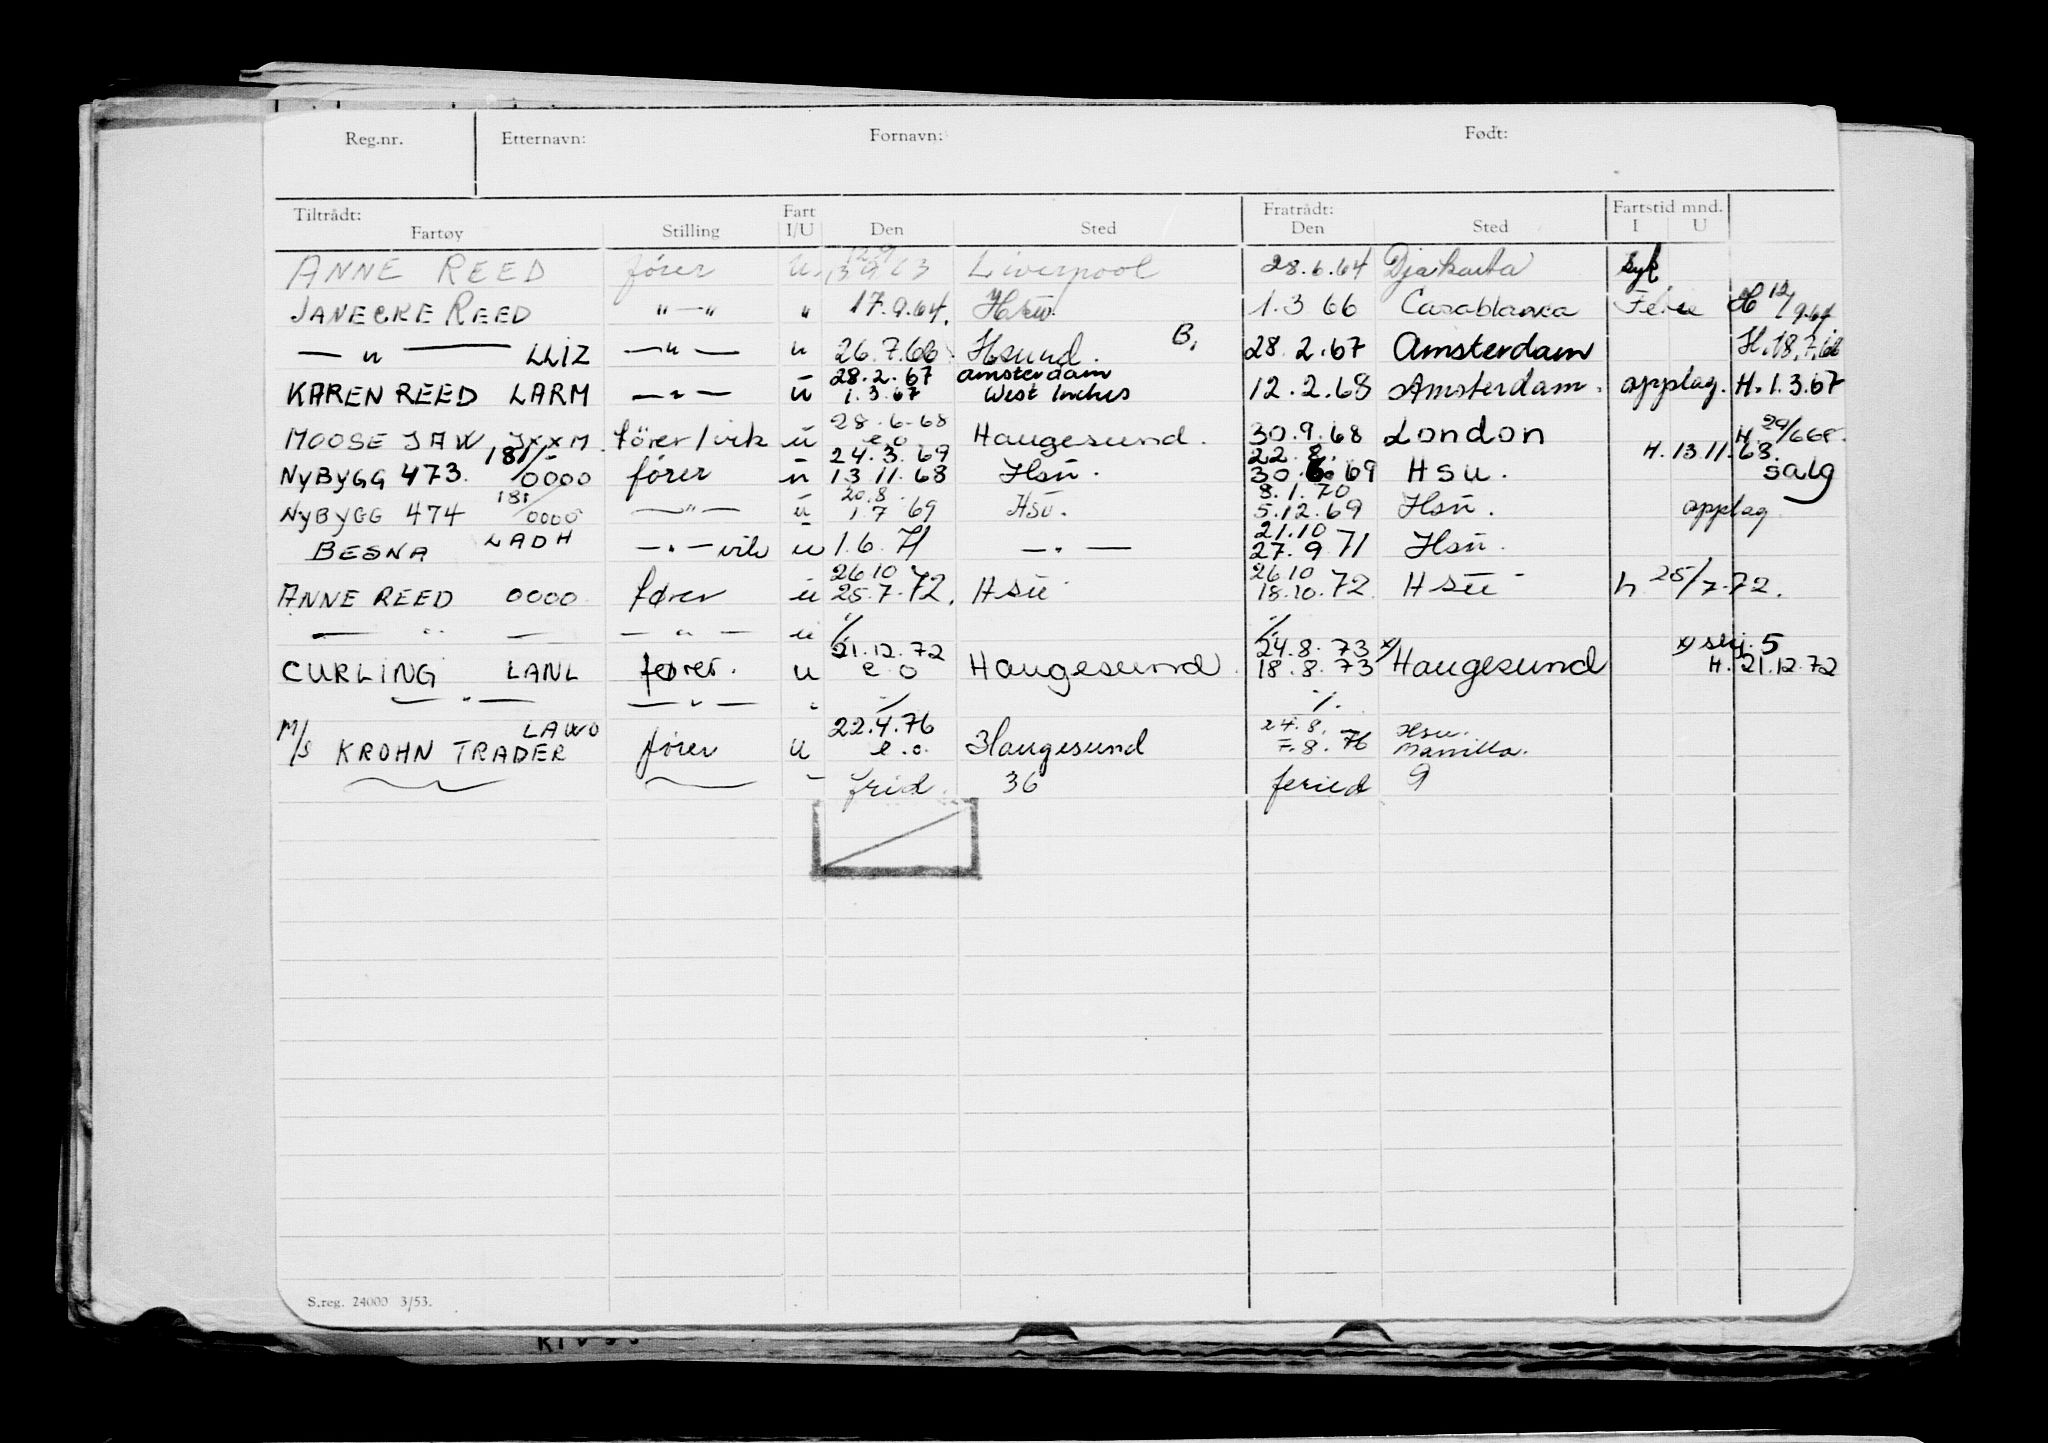 Reg.nr. Etternavn: Fornavn: Født:
Tiltrådt: Fartøy Stilling Fart I/U Den Sted Fratrådt: Den Sted Fartstid mnd. I U
ANNE REED fører u. Liverpool 28.6.64 Djakarta syk
JANECKE REED "—" " 17.9.64. 1.3 66 Casablanca Ferie H 12/9.64
— " — LLIZ —"— u 26.7.66. Hsund. B. 28.2.67 Amsterdam H.18.7.66
28.2.67 Amsterdam
KAREN REED LARM —"— u 1.3.67 West Inches 12.2.68 Amsterdam. opplag. H.1.3.67
28.6.68
MOOSE JAW JXXM. fører/vik u e.o. Haugesund. 30.9.68 London H. 29/6 68.
181/- 24.3.69 22.8.
NYBYGG 473. 0000 fører u 13 11.68 Hsu. 30.6.69 Hsu. H.13.11.68. salg
181/ 20.8. 8.1.70
NYBYGG 474 0000 —"— u 1.7 69 Hsu. 5.12.69 Hsu. opplag
21.10
BESNA LADH —"—vik u 1.6.71 —"— 27.9.71 Hsu.
26 10 26 10
ANNE REED 0000 fører u 25.7.72. Hsu 18.10.72. Hsu h 25/7.72.
— " — — " — u % %
21.12.72 24.8.73 x) x) skj. 5
CURLING LANL fører. u e.o Haugesund. 18.8.73 Haugesund H. 21.12.72
— " — — " — " % %.
LAWO 22.4.76 24.8. — Hsu.
M/S KROHN TRADER fører u e.o. Haugesund 7.8.76 Manilla.
frid. 36 feried 9
S.reg. 24000 3/53.